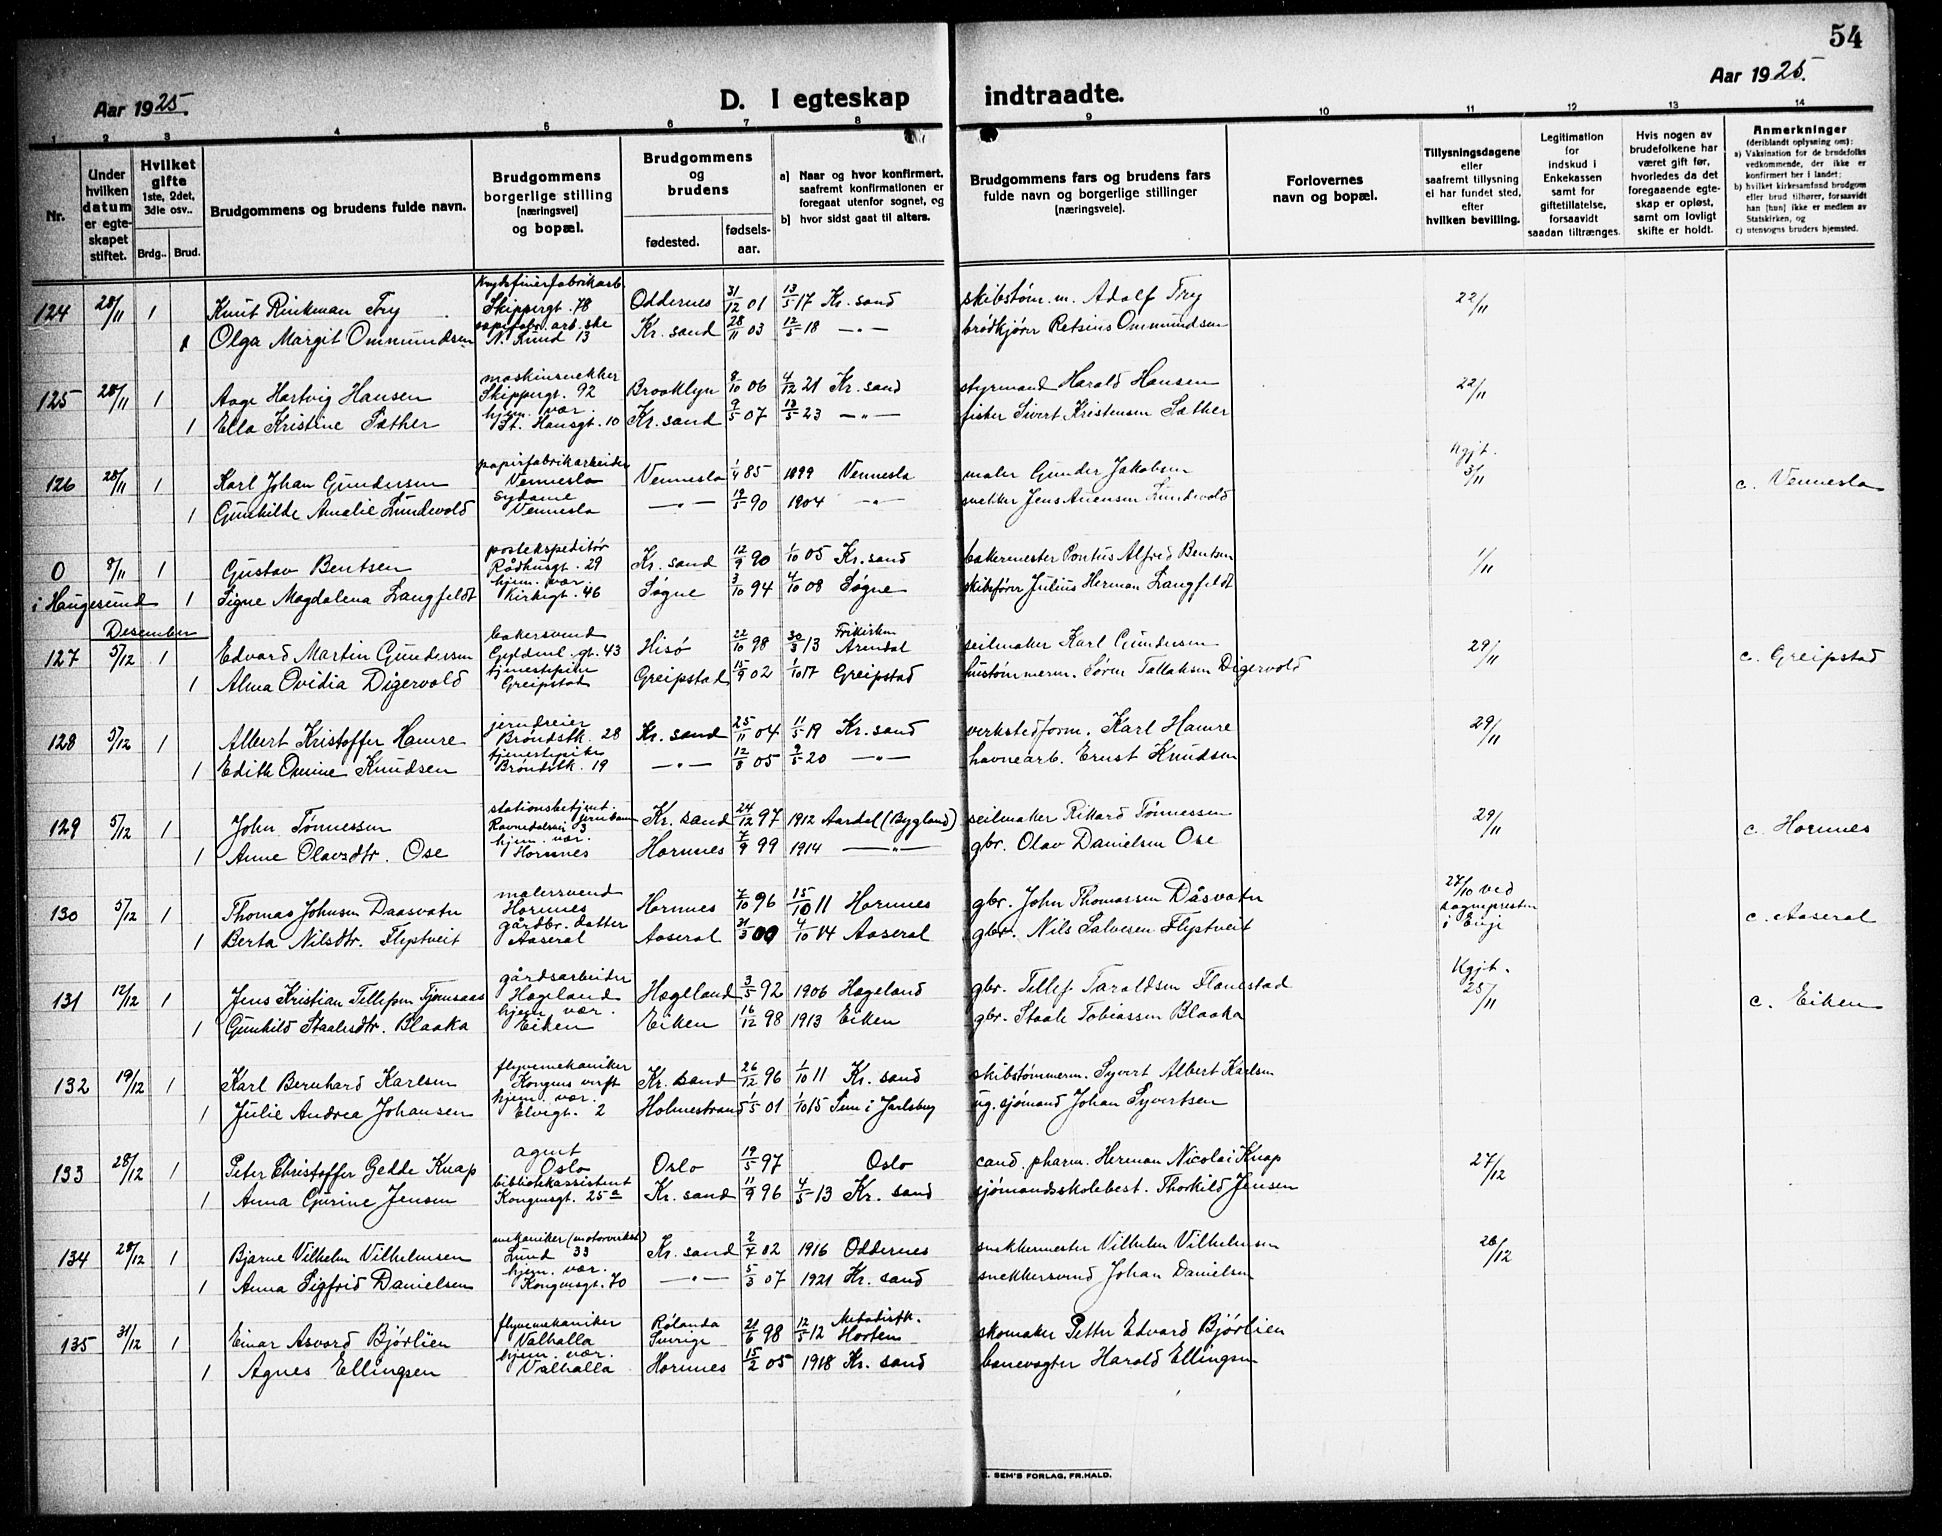 54
Aar 1925.
D. I egteskap indtraadte.
Aar 1925.
1 2 3 4 5 6 7 8 9 10 11 12 13 14
Nr.
Under hvilken datum er egte- skapet stiftet.
Hvilket gifte 1ste, 2det, 3die osv..
Brdg.. Brud.
Brudgommens og brudens fulde navn.
Brudgommens borgerlige stilling (næringsvei) og bopæl.
Brudgommens og brudens
fødested. fødsels- aar.
a) Naar og hvor konfirmert, saafremt konfirmationen er foregaat utenfor sognet, og
b) hvor sidst gaat til alters.
Brudgommens fars og brudens fars fulde navn og borgerlige stillinger (næringsveie).
Forlovernes navn og bopæl.
Tillysningsdagene eller saafremt tillysning ei har fundet sted, efter hvilken bevilling.
Legitimation for indskud i Enkekassen samt for giftetillatelse, forsaavidt saadan tiltrænges.
Hvis nogen av brudefolkene har været gift før, hvorledes da det foregaaende egte- skap er opløst, samt om lovligt skifte er holdt.
Anmerkninger (deriblandt oplysning om):
a) Vaksination for de brudefolks vedkommende, der ikke er konfirmert her i landet;
b) hvilket kirkesamfund brudgom eller brud tilhører, forsaavidt han [hun] ikke er medlem av Statskirken, og
c) utensogns bruders hjemsted.
124 28/11 1 Knut Rinkman Try Skippergt. 78 Oddernes 31/12 01 13/5 17 Kr. sand skibstøm.m. Adolf Try 22/11
1 Olga Margit Ommundsen N. Kund 13 Kr. sand 28/11 03 12/5 18 —"— brødkjører Retsius Ommundsen
125 28/11 1 Aage Hartvig Hansen maskinsnekker Skippergt. 92 Brooklyn 8/10 06 4/12 21 Kr. sand styrmand Harald Hansen 22/11
1 Ella Kristine Sæther hjem. vær. St. Hansgt. 10 Kr. sand 9/5 07 13/5 23 —"— fisker Sivert Kristensen Sæther
126 28/11 1 Karl Johan Gundersen papirfabrikarbeider Vennesla Vennesla 1/4 85 1899 Vennesla maler Gunder Jakobsen Kgjt. 3/11 c. Vennesla
1 Gunhilde Amalie Lundevold sydame Vennesla —"— 19/5 90 1904 —"— snekker Jens Auensen Lundevold
0 8/11 1 Gustav Bentsen postekspeditør Rådhusgt. 29 Kr. sand 12/9 90 1/10 05 Kr. sand bakermester Pontus Alfred Bentsen 1/11
i Haugesund 1 Signe Magdalena Langfeldt hjem. vær. Kirkegt. 46 Søgne 3/10 94 4/10 08 Søgne skibsfører Julius Herman Langfeldt
Desember
127 5/12 1 Edvard Martin Gundersen bakersvend Gyldenl. gt. 43 Hisø 22/10 98 30/3 13 Frikirken Arendal seilmaker Karl Gundersen 29/11 c. Greipstad
1 Alma Ovidia Digervold tjenestepike Greipstad Greipstad 15/9 02 1/10 17 Greipstad hustømmerm. Søren Tallaksen Digervold
128 5/12 1 Albert Kristoffer Hamre jerndreier Brøndstk. 28 Kr. sand 25/11 04 11/5 19 Kr. sand verkstedform. Karl Hamre 29/11
1 Edith Omine Knudsen tjenestepike Brøndstk. 19 —"— 12/8 05 9/5 20 —"— havnearb. Ernst Knudsen
129 5/12 1 John Tønnessen stationsbetjent. jernban Ravnedalsvei 3 Kr. sand 24/12 97 1912 Aardal (Bygland) seilmaker Rikard Tønnessen 29/11 c. Hornnes
1 Anne Olavsdtr. Ose hjem. vær. Hornnes Hornnes 7/9 99 1914 —"— gbr. Olav Danielsen Ose
130 5/12 1 Thomas Johnsen Daasvatn malersvend Hornnes Hornnes 7/10 96 15/10 11 Hornnes gbr. John Thomassen Dåsvatn 27/10 ved sognepresten i Evje c. Aaseral
1 Berta Nilsdtr. Flystveit gårdbr. datter Aaseral Aaseral 31/3 00 4/10 14 Aaseral gbr. Nils Salvesen Flystveit
131 12/12 1 Jens Kristian Tellefsen Tjomsaas gårdsarbeider Hægeland Hægeland 3/5 92 1906 Hægeland gbr. Tellef Taraldsen Flanestad Kgjt. 25/11 c. Eiken
1 Gunhild Staalesdtr. Blaaka hjem. vær. Eiken Eiken 16/12 98 1913 Eiken gbr. Staale Tobiassen Blaaka
132 19/12 1 Karl Bernhard Karlsen flyvemekaniker Kongens verft Kr. sand 26/12 96 1/10 11 Kr. sand skibstømmerm. Syvert Albert Karlsen
1 Julie Andrea Johansen hjem. vær. Elvegt. 2 Holmestrand 5/5 01 1/10 15 Sem i Jarlsberg ug. sjømand Johan Syvertsen
133 28/12 1 Peter Christoffer Gedde Knap agent Oslo Oslo 19/5 97 Oslo cand. pharm. Herman Nicolai Knap 27/12
1 Anna Gurine Jensen bibliotekassistent Kongensgt. 25a Kr. sand 11/9 96 4/5 13 Kr. sand sjømandsskolebest. Thorkild Jensen
134 28/12 1 Bjarne Vilhelm Vilhelmsen mekaniker (motorverksted) Lund 33 Kr. sand 2/7 02 1916 Oddernes snekkermester Vilhelm Vilhelmsen 26/12
1 Anna Sigfrid Danielsen hjem. vær. Kongensgt. 70 —"— 5/3 07 1921 Kr. sand snekkersvend Johan Danielsen
135 31/12 1 Einar Asvard Bjørlien flyvemekaniker Valhalla Rølanda Sverige 21/6 98 12/5 12 Metodistk. Horten skomaker Petter Edvard Bjørlien
1 Agnes Ellingsen hjem. vær. Valhalla Hornnes 15/2 05 1918 Kr. sand banevogter Harald Ellingsen
SEM'S FORLAG, FR.HALD.